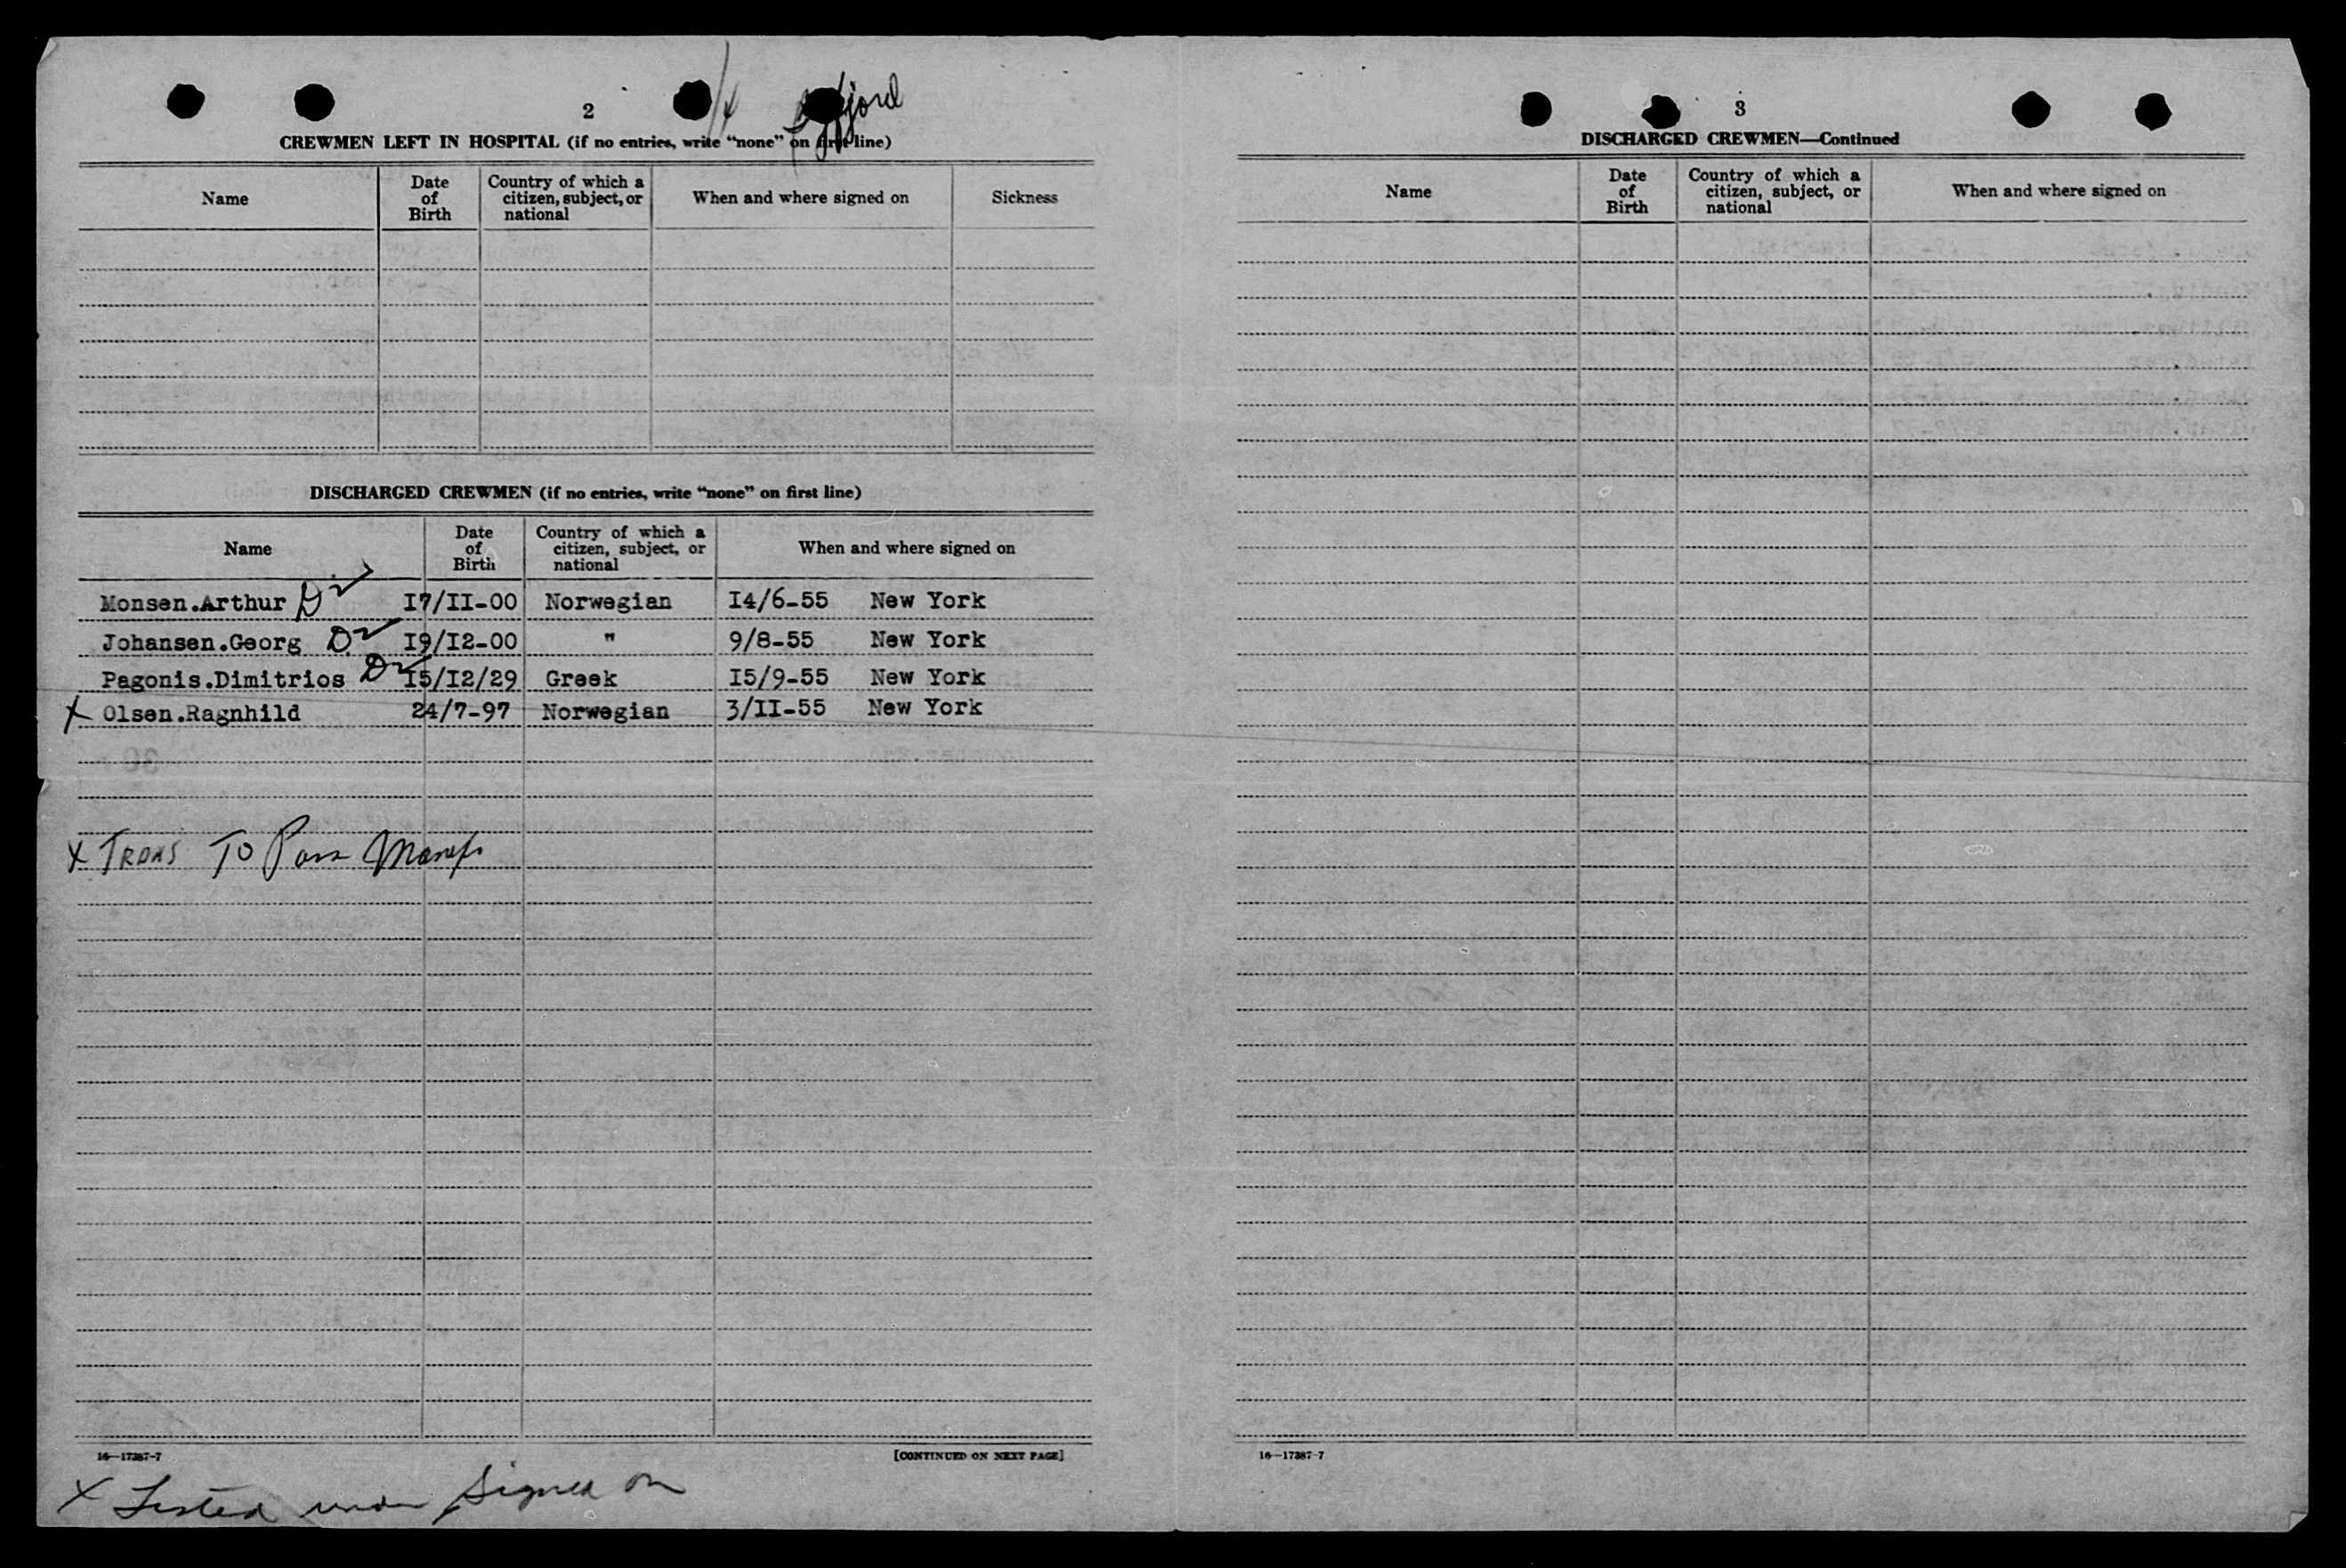 2
CREWMEN LEFT IN HOSPITAL (if no entries, write "none" on first line)
Name Date of Birth Country of which a citizen, subject, or national When and where signed on Sickness
DISCHARGED CREWMEN (if no entries, write "none" on first line)
Name Date of Birth Country of which a citizen, subject, or national When and where signed on
Monsen.Arthur D 17/II-00 Norwegian I4/6-55 New York
Johansen.Georg D I9/I2-00 " 9/8-55 New York
Pagonis.Dimitrios D I5/I2/29 Greek I5/9-55 New York
X Olsen.Ragnhild 24/7-97 Norwegian 3/II-55 New York
X TRANS TO Pass Manif
16—17387-7 [CONTINUED ON NEXT PAGE]
X Listed under Signed on
3
DISCHARGED CREWMEN—Continued
Name Date of Birth Country of which a citizen, subject, or national When and where signed on
16—17387-7